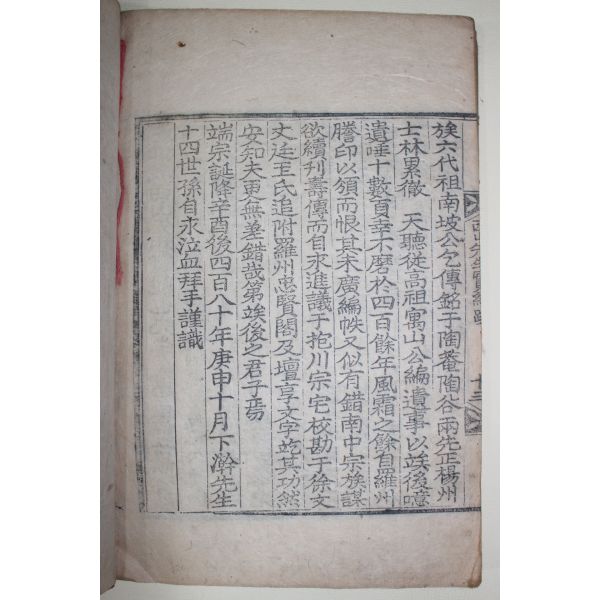 族六代祖南坡公乞傳銘于陶菴陶谷兩先正楊州
士林累徹　天聽從高祖寓山公編遺事以竢後噫
遺唾十數頁幸不磨於四百餘年風霜之餘自羅州
謄印以頒而恨其未廣編帙又似有錯南中宗族謀
欲續刊壽傳而自永進議于抱川宗宅校勘于徐文
文廷王氏追附羅州忠賢閣及壇享文字訖其功然
安知夫更無差錯哉第竢後之君子正焉
端宗誕降辛酉後四百八十年庚申十月下澣先生
十四世孫自永泣血拜手謹識
先生實紀跋
十三